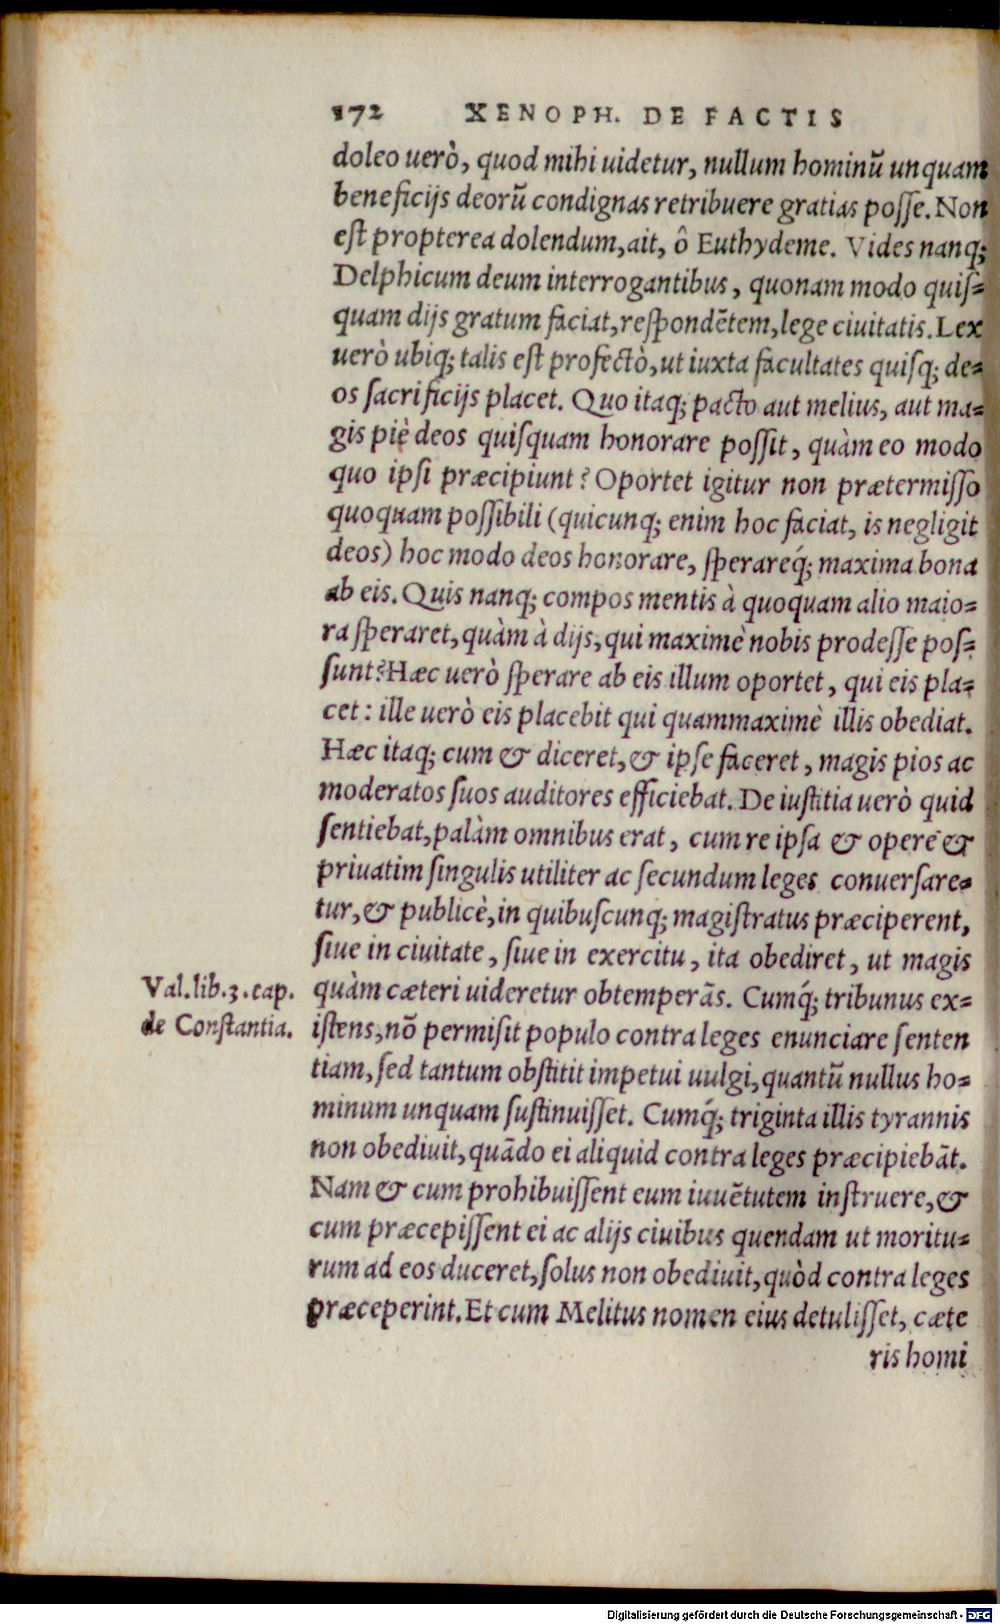 172 XENOPH. DE FACTIS
doleo uerò, quod mihi uidetur, nullum hominũ unquam
beneficijs deorũ condignas retribuere gratias posse. Non
est propterea dolendum, ait, ô Euthydeme. Vides nanq;
Delphicum deum interrogantibus, quonam modo quis=
quam dijs gratum faciat, respondẽtem, lege ciuitatis. Lex
uerò ubiq; talis est profectò, ut iuxta facultates quisq; de=
os sacrificijs placet. Quo itaq; pacto aut melius, aut ma=
gis piè deos quisquam honorare possit, quàm eo modo
quo ipsi præcipiunt? Oportet igitur non prætermisso
quoquam possibili (quicunq; enim hoc faciat, is negligit
deos) hoc modo deos honorare, sperareq́; maxima bona
ab eis. Quis nanq; compos mentis à quoquam alio maio=
ra speraret, quàm à dijs, qui maximè nobis prodesse pos=
sunt? Hæc uerò sperare ab eis illum oportet, qui eis pla=
cet: ille uerò eis placebit qui quammaximè illis obediat.
Hæc itaq; cum & diceret, & ipse faceret, magis pios ac
moderatos suos auditores efficiebat. De iustitia uerò quid
sentiebat, palàm omnibus erat, cum re ipsa & opere &
priuatim singulis utiliter ac secundum leges conuersare=
tur, & publicè, in quibuscunq; magistratus præciperent,
siue in ciuitate, siue in exercitu, ita obediret, ut magis
quàm cæteri uideretur obtemperãs. Cumq́; tribunus ex=
istens, nõ permisit populo contra leges enunciare senten
tiam, sed tantum obstitit impetui uulgi, quantũ nullus ho=
minum unquam sustinuisset. Cumq́; triginta illis tyrannis
non obediuit, quãdo ei aliquid contra leges præcipiebãt.
Nam & cum prohibuissent eum iuuẽtutem instruere, &
cum præcepissent ei ac alijs ciuibus quendam ut moritu=
rum ad eos duceret, solus non obediuit, quòd contra leges
præceperint. Et cum Melitus nomen eius detulisset, cæte
ris homi
Val. lib. 3. cap.
de Constantia.
Digitalisierung gefördert durch die Deutsche Forschungsgemeinschaft - DFG